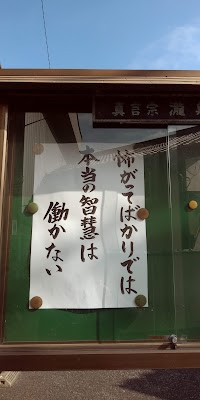 真言宗 瀧
怖がってばかりでは
本当の智慧は
働かない